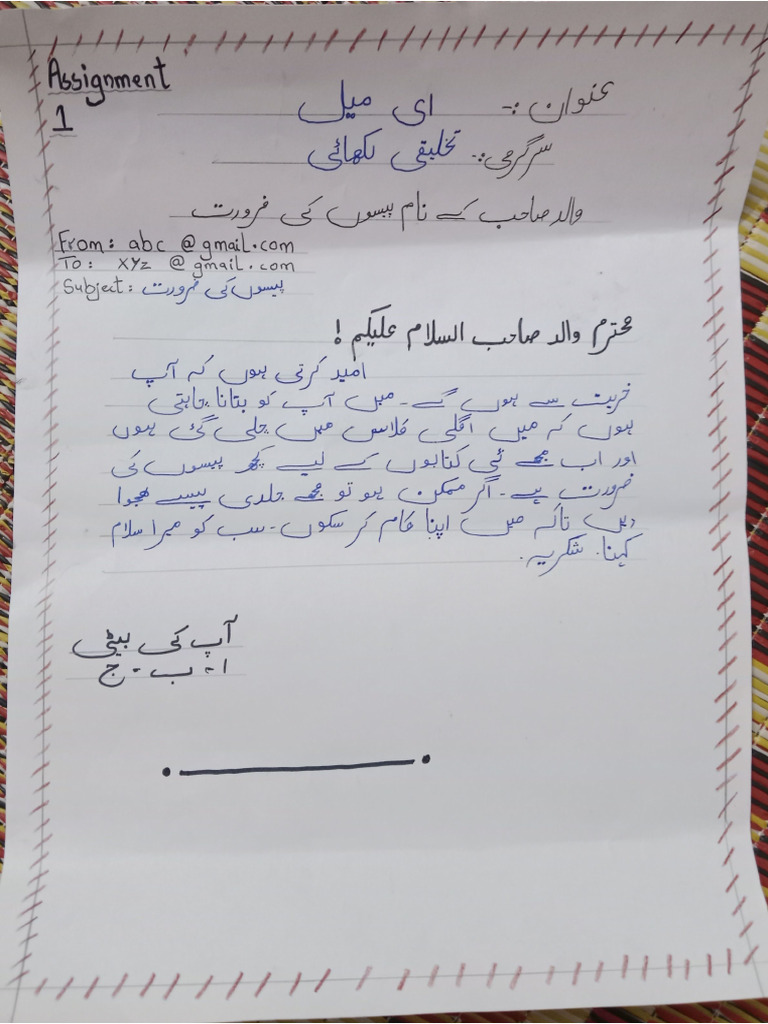 Assignment
1
عنوان :- ای میل
سرگرمی :- تخلیقی لکھائی
والد صاحب کے نام پیسوں کی ضرورت
From: abc @gmail.com
To: xyz @gmail.com
Subject: پیسوں کی ضرورت
محترم والد صاحب السلام علیکم!
امید کرتی ہوں کہ آپ
خریت سے ہوں گے۔ میں آپ کو بتانا چاہتی
ہوں کہ میں اگلی کلاس میں چلی گئی ہوں
اور اب مجھے نئی کتابوں کے لیے کچھ پیسوں کی
ضرورت ہے۔ اگر ممکن ہو تو مجھے جلدی پیسے بھجوا
دیں تاکہ میں اپنا کام کر سکوں۔ سب کو میرا سلام
کہنا۔ شکریہ۔
آپ کی بیٹی
ا۔ ب۔ ج